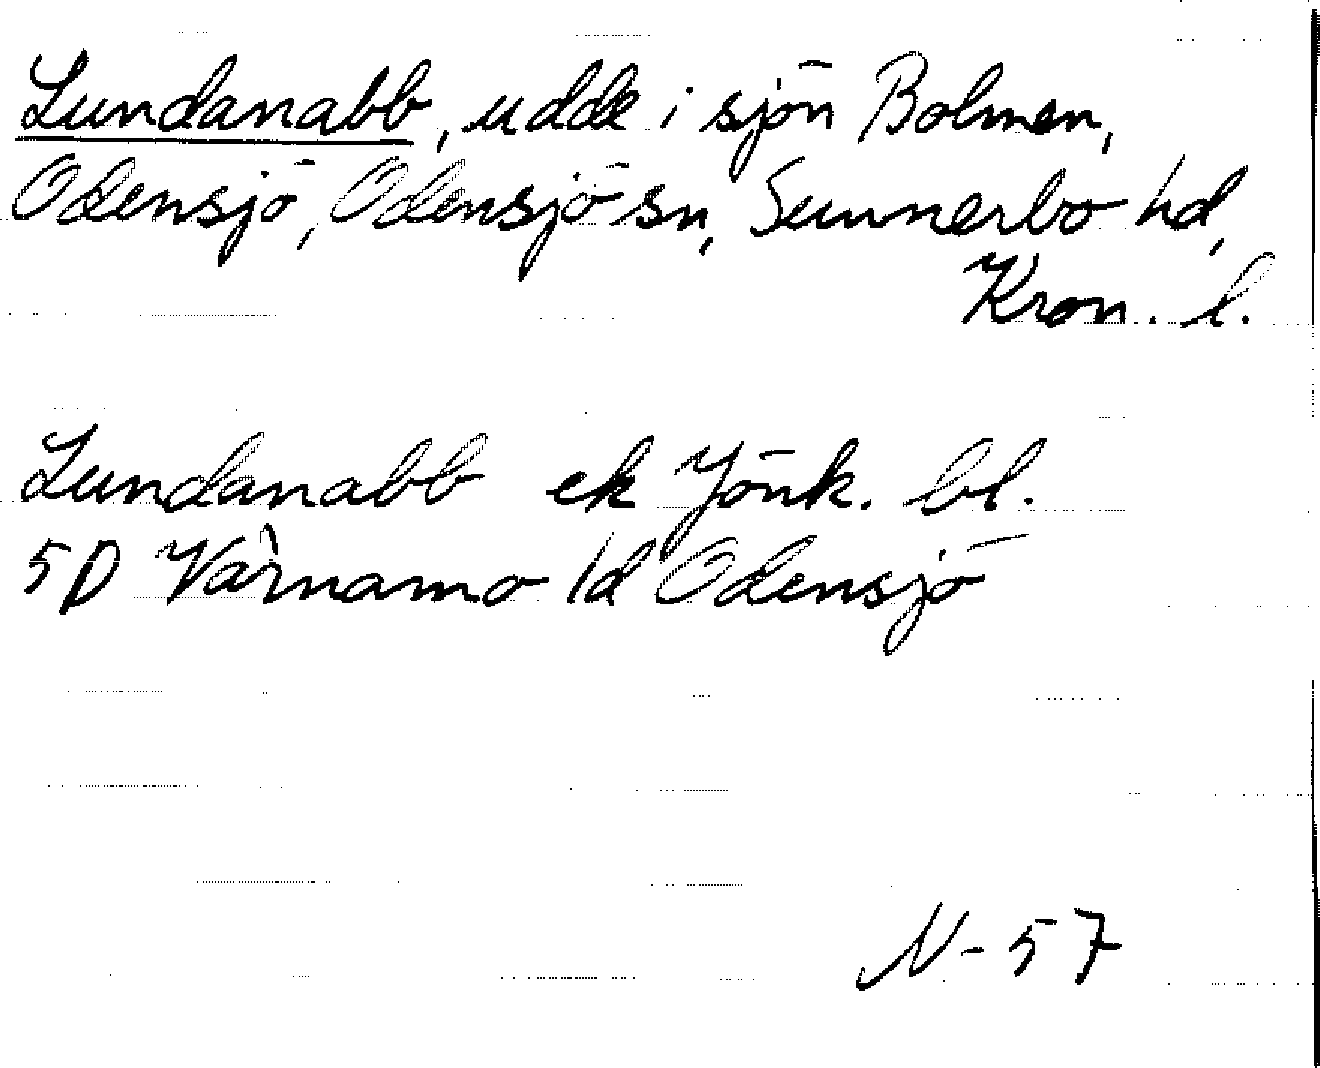 Lundanabb, udde i sjön Bolmen,
Odensjö, Odensjö sn, Sunnerbo hd,
Kron. l.
Lundanabb ek Jönk. bl.
5D Värnamo 1d Odensjö
N-57